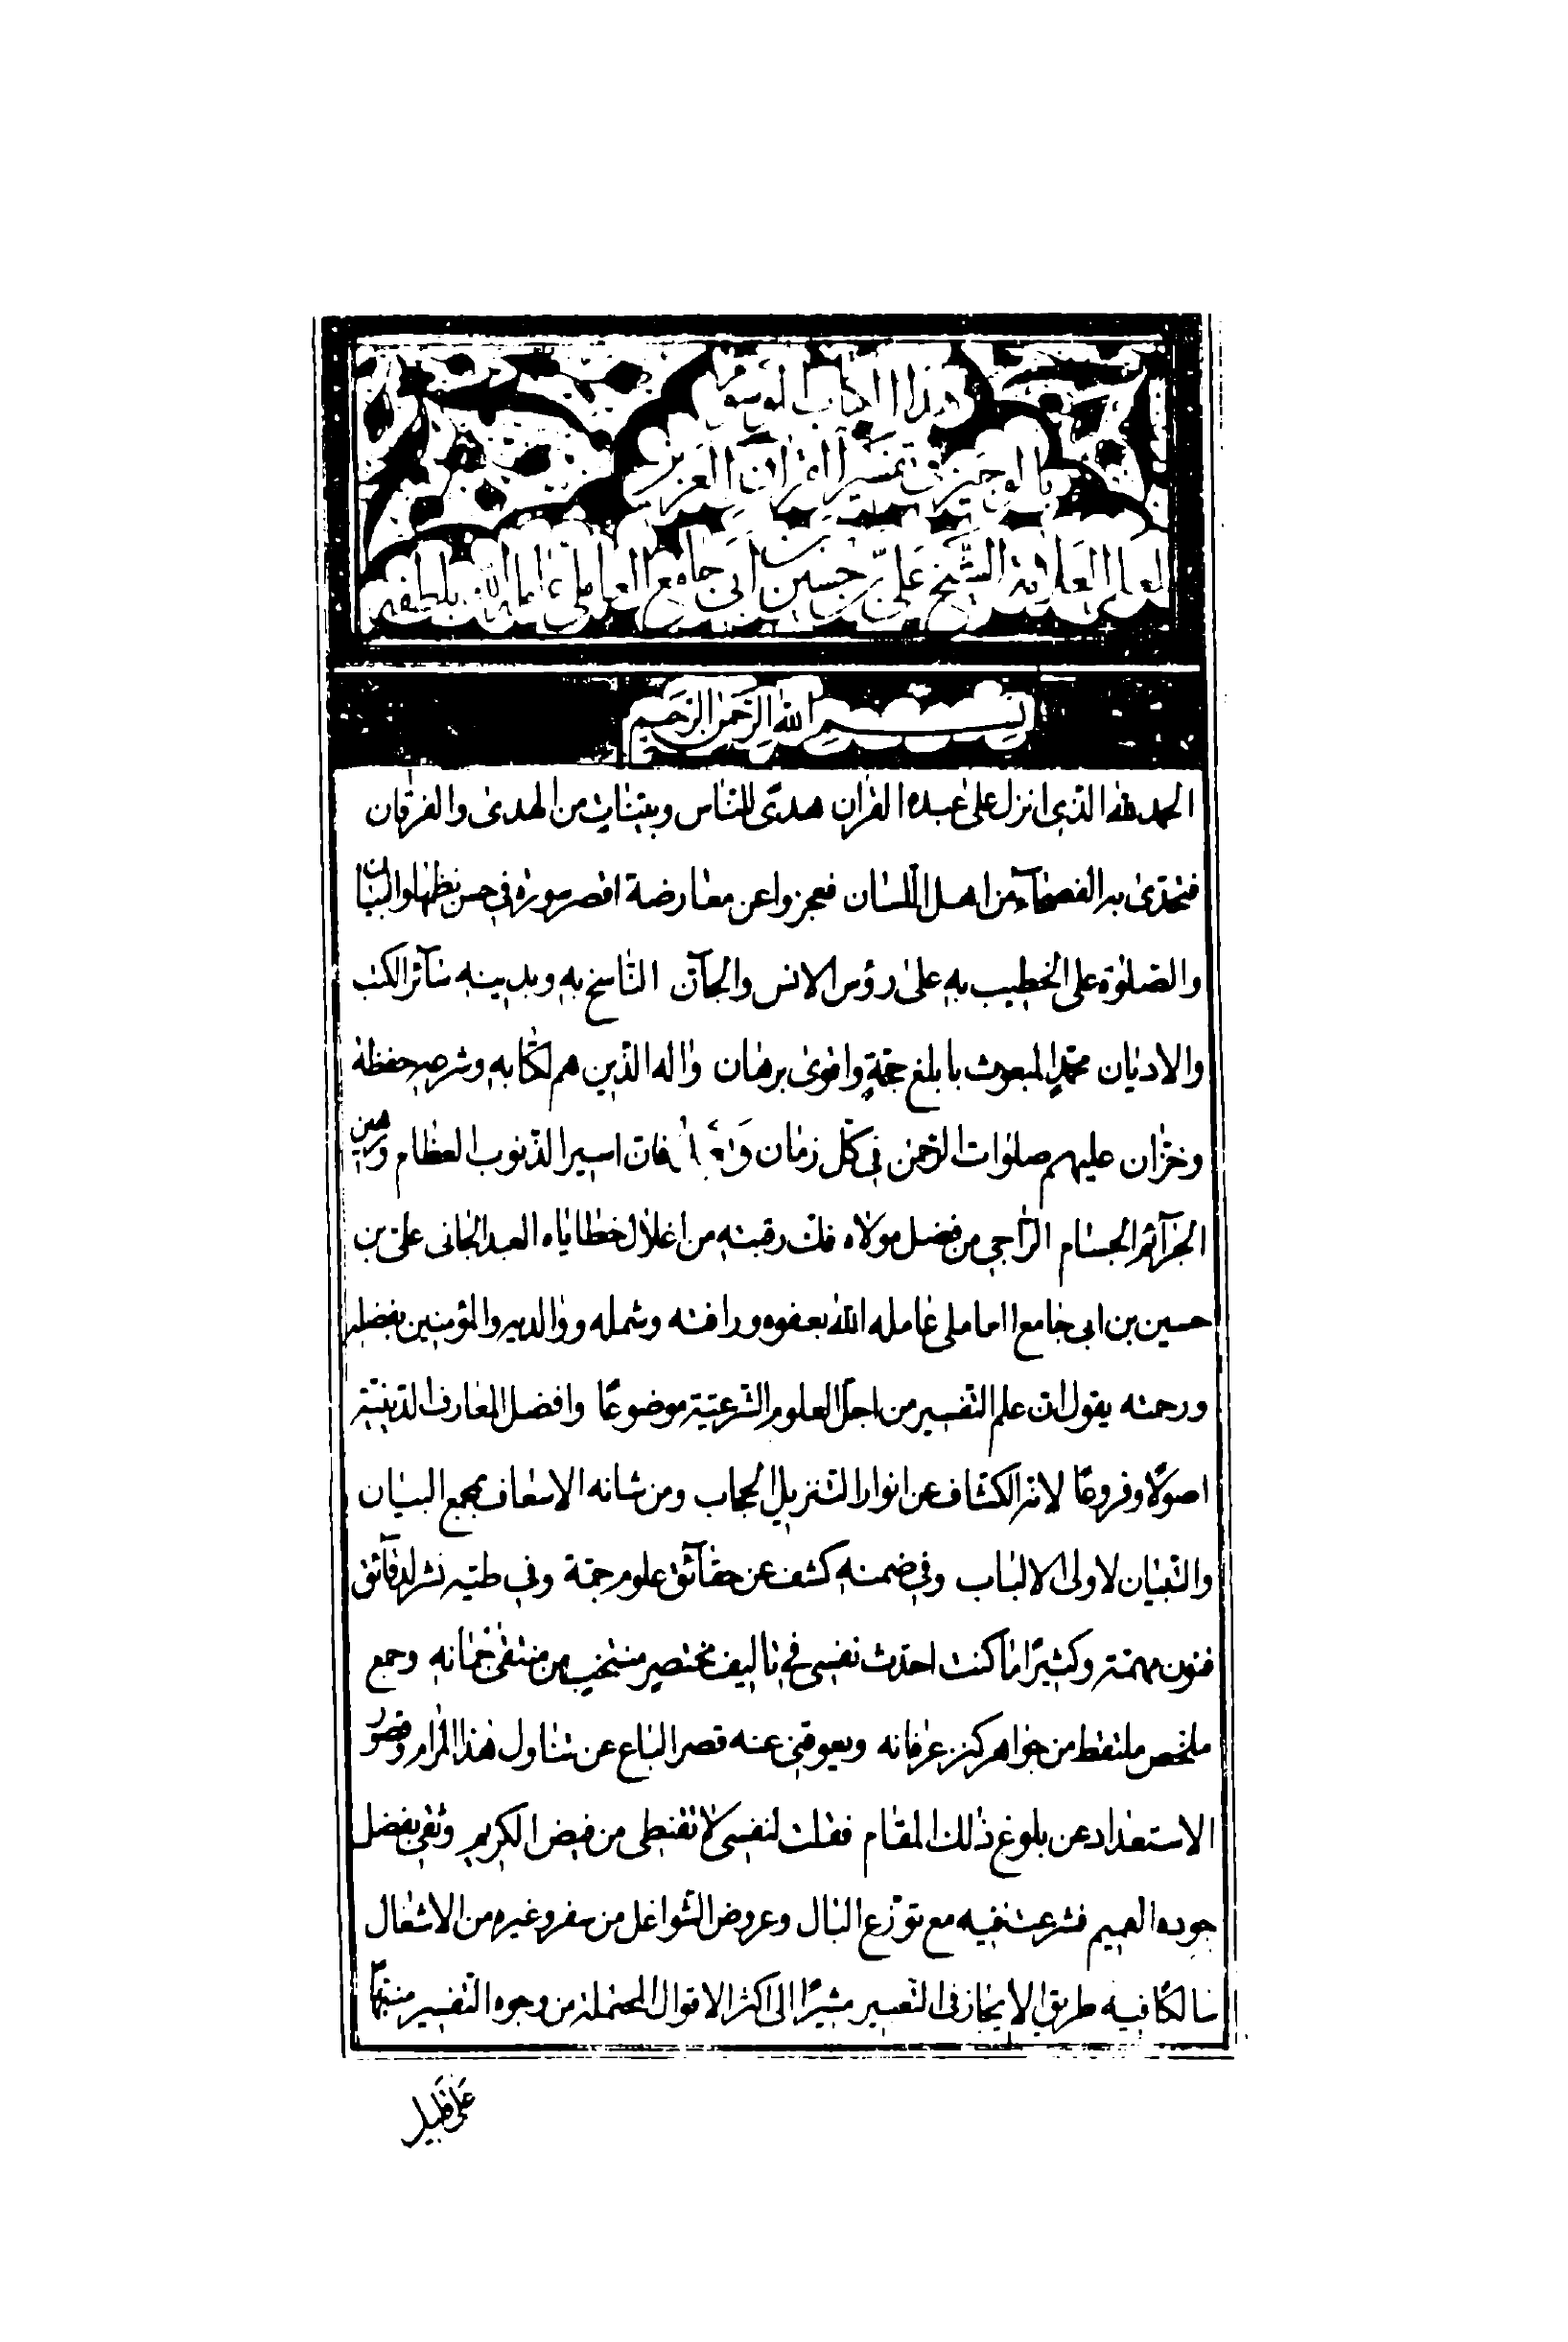 هذا الكتاب الموسوم
بالوجيز في تفسير القرآن العزيز
العلامة الشيخ علي بن حسين بن ابي جامع العاملي عامله الله بلطفه
بسم الله الرحمن الرحيم
الحمد لله الذي انزل على عبده القران هدًى للناس وبينات من الهدى والفرقان
فتحدى به الفصحآء من اهل اللسان فعجزوا عن معارضة اقصر سورة في حسن نظمها والبيان
والصلوة على الخطيب به على رؤس الانس والجآن الناسخ به وبدينه سآئر الكتب
والاديان محمدٍ المبعوث بابلغ حجةٍ واقوى برهان واله الذين هم لكتابه وشرعه حفظة
وخزان عليهم صلوات الرحمن في كل زمان فان اسير الذنوب العظام ورهين
الجرآئم الجسام الراجي من فضل مولاه فك رقبته من اغلال خطاياه العبد الجاني علي بن
حسين بن ابي جامع العاملي عامله الله بعفوه ورافته وشمله ووالديه والمؤمنين بفضله
ورحمته يقول ان علم التفسير من اجل العلوم الشرعية موضوعًا وافضل المعارف الدينية
اصولًا وفروعًا لانه الكشاف عن انوار التنزيل الحجاب ومن شانه الاسعاف بمجمع البيان
والتبيان لاولي الالباب وفي ضمنه كشف عن حقآئق علوم جمة وفي طيه نشر لدقآئق
فنون مهمة وكثيرًا ما كنت احدث نفسي في تاليف مختصرٍ منتخبٍ من منتقى جمانه وجمع
ملخص ملتقط من جواهر كنز عرفانه ويعوقني عنه قصر الباع عن تناول هذا المرام وقصور
الاستعداد عن بلوغ ذلك المقام فقلت لنفسي لا تقنطي من فيض الكريم وثقي بفضل
جوده العميم فشرعت فيه مع توزع البال وعروض الشواغل من سفر وغيره من الاشغال
سالكًا فيه طريق الايجاز في التعبير مشيرًا الى اكثر الاقوال المحتملة من وجوه التفسير منبهًا
على قليل